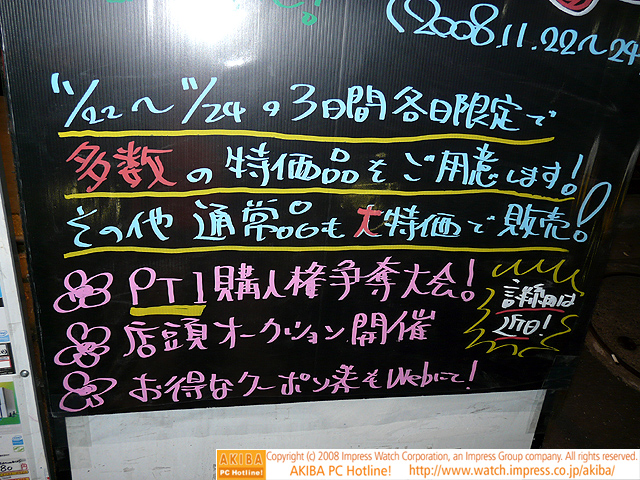 (2008.11.22～24
11/22～11/24の3日間各日限定で
多数の特価品をご用意します!
その他 通常品も大特価で販売!
PT1購入権争奪大会!
詳細は
21日!
店頭オークション開催
お得なクーポン券もWebにて!
AKIBA
PC Hotline!
Copyright (c) 2008 Impress Watch Corporation, an Impress Group company. All rights reserved.
AKIBA PC Hotline! http://www.watch.impress.co.jp/akiba/